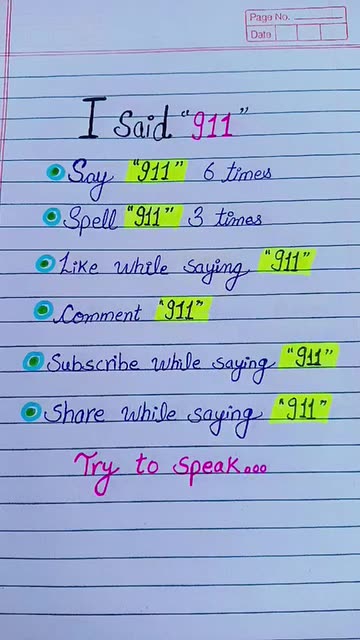 Page No.
Date
I Said "911"
Say "911" 6 times
Spell "911" 3 times
Like while saying "911"
Comment "911"
Subscribe while saying "911"
Share while saying "911"
Try to speak...